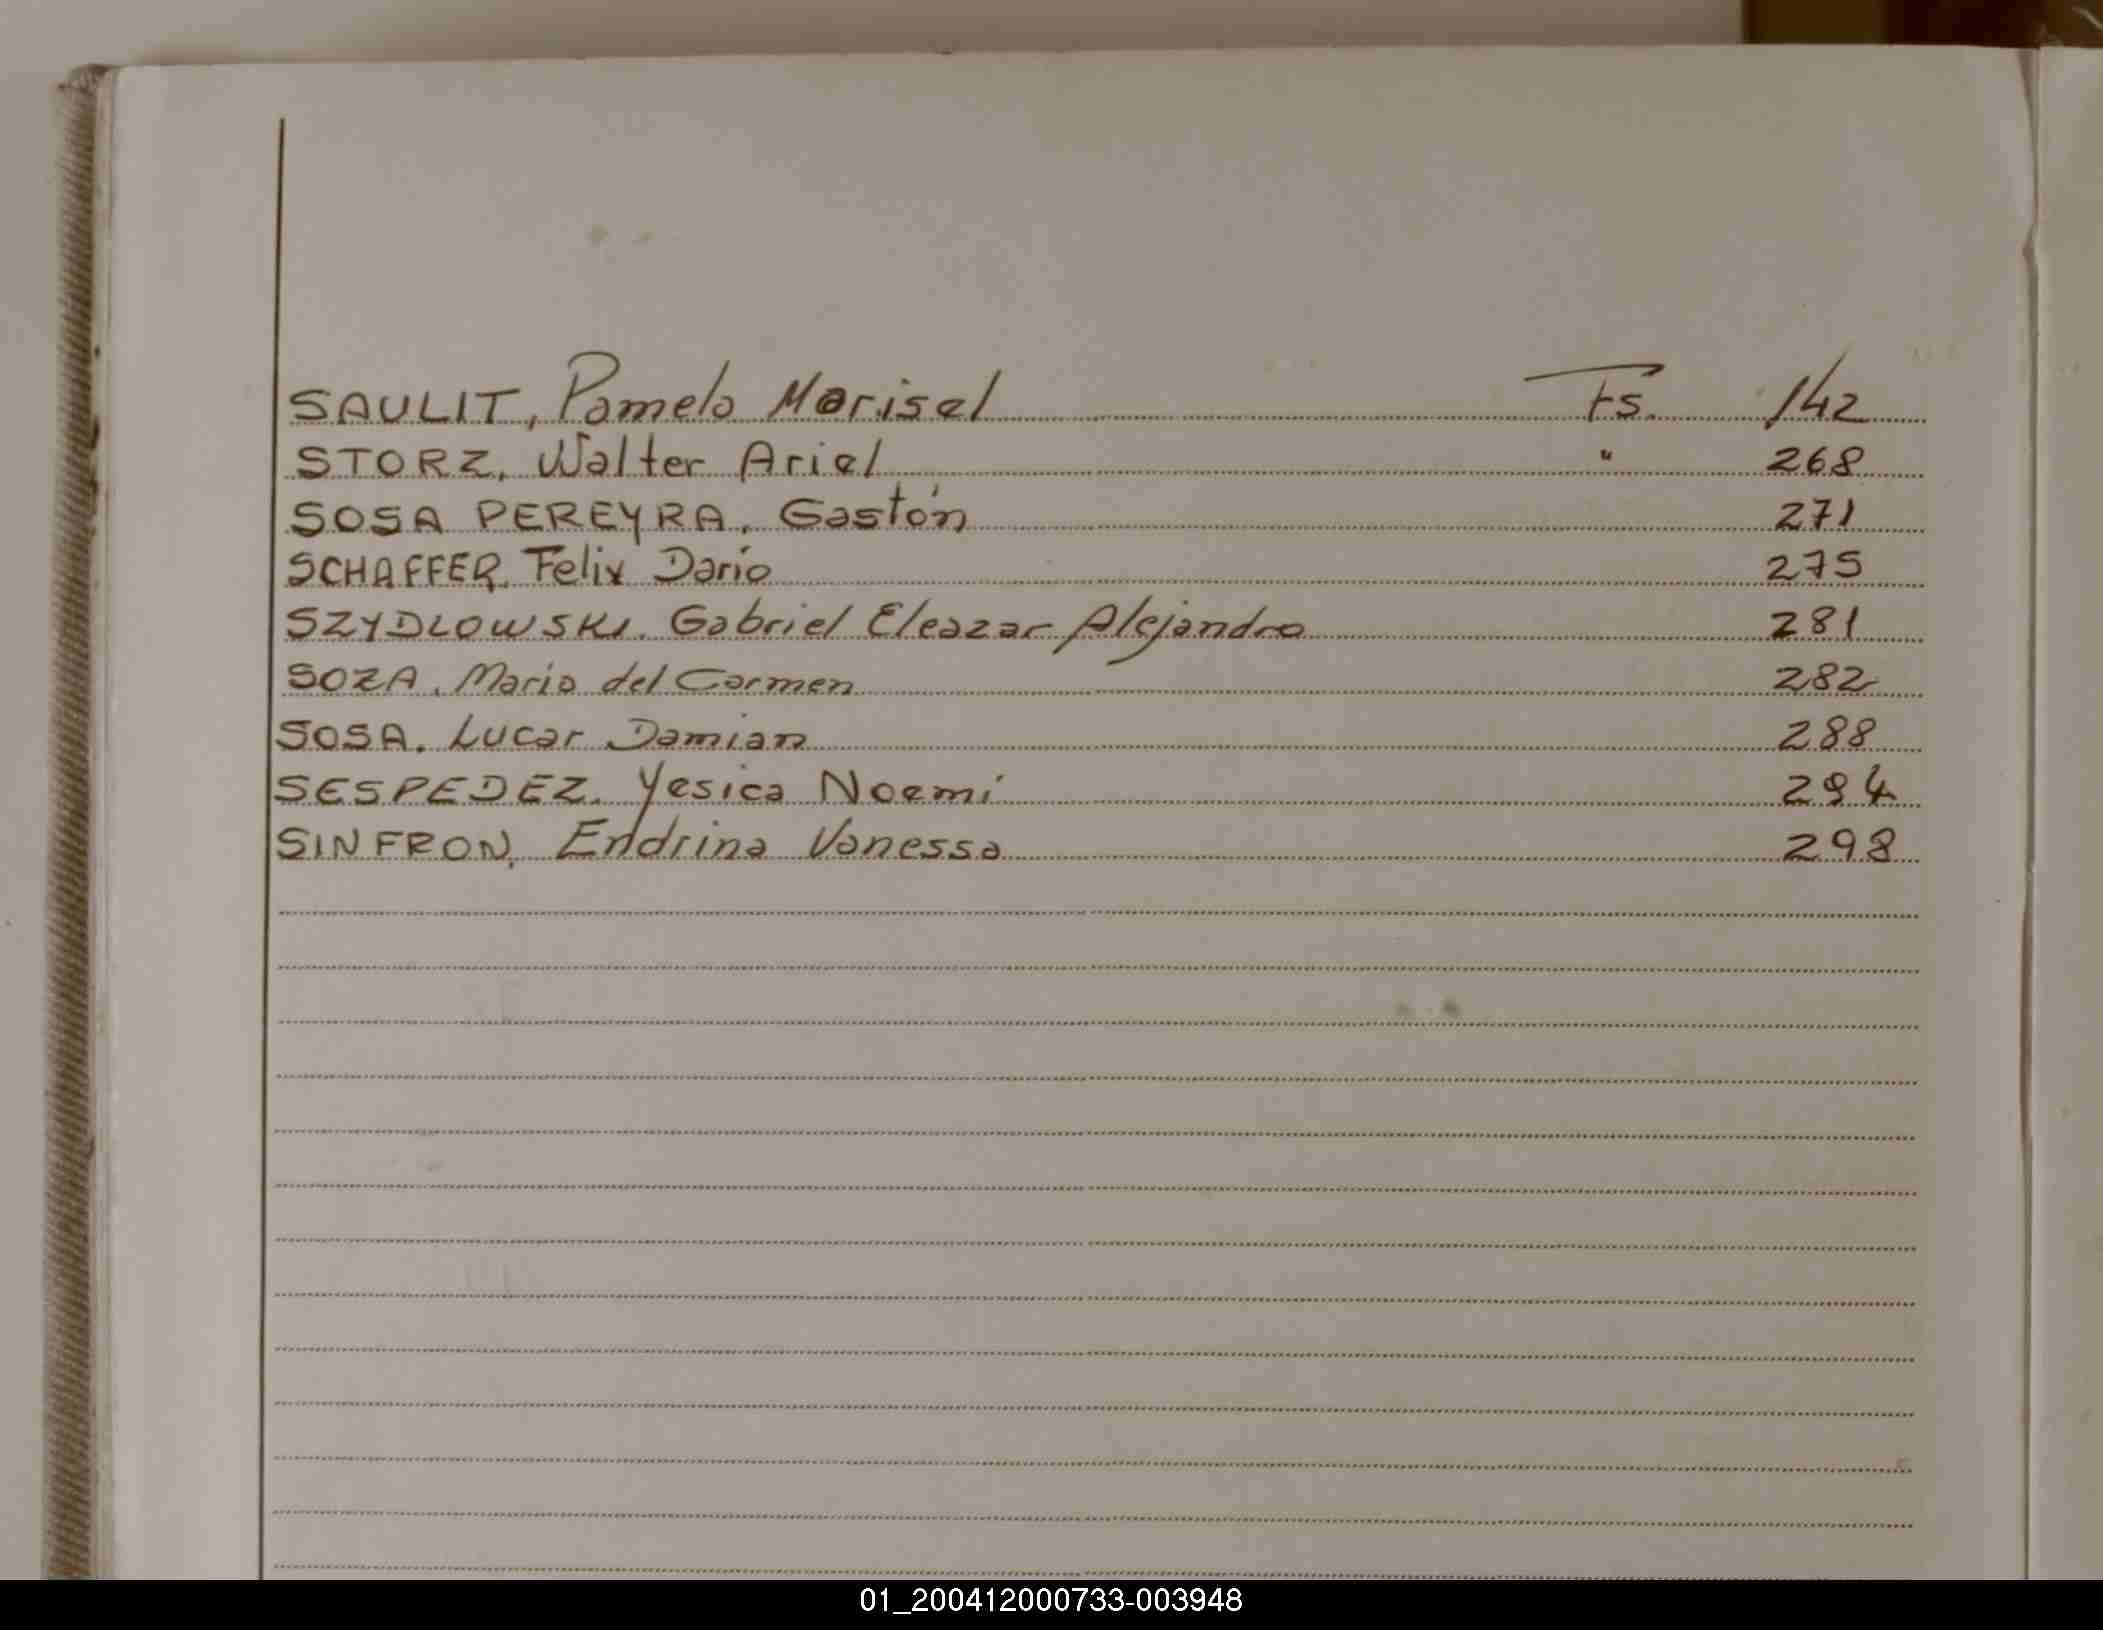 SAULIT, Pamela Marisel Fs. 142
STORZ, Walter Ariel " 268
SOSA PEREYRA, Gastón 271
SCHAFFER, Felix Dario 275
SZYDLOWSKI, Gabriel Eleazar Alejandro 281
SOZA, Maria del Carmen 282
SOSA, Lucar Damian 288
SESPEDEZ, Yesica Noemi 294
SINFRON, Endrina Vanessa 298
01_200412000733-003948